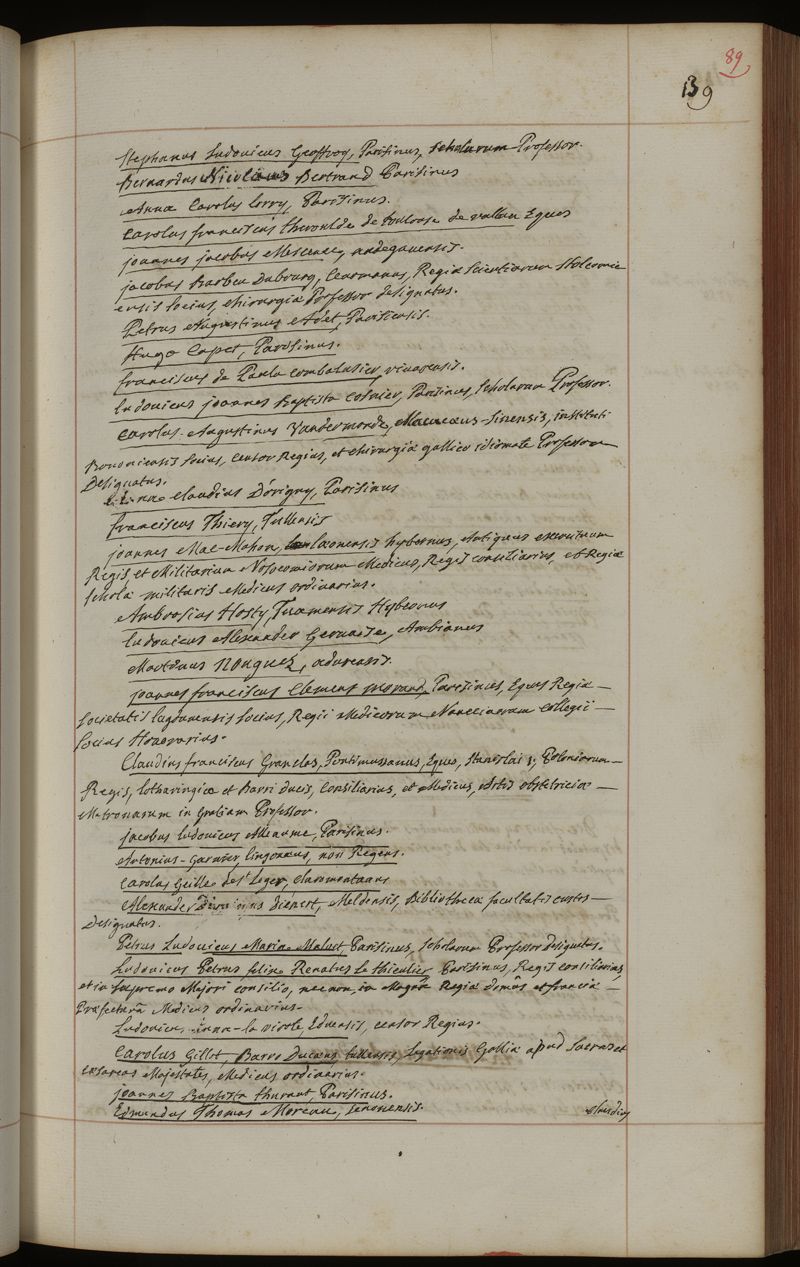 89
139
Stephanus Ludovicus Geoffroy, Parisinus, scholarum Professor.
Bernardus Nicolaus Bertrand Parisinus
Anna Carolus Lorry, Parisinus.
Carolus franciscus theroulde de Vallun Eques
joannes jacobus Messence, andegavensis.
jacobus Barbeu Dubourg, Cenomanus, Regiæ Scientiarum Stolcomi
ensis socius, chirurgiæ Professor designatus.
Petrus Augustinus Adet, Parisiensis.
Hugo Capet, Parisinus.
franciscus de Paula Combalusier, vivarensis.
ludovicus joannes Baptista Cosnier, Parisinus, Scholarum Professor.
Carolus-Augustinus Vandermonde, Macaeus-Sinensis, instituti
Bononiensis socius, Censor Regius, et chirurgiæ gallico idiomate Professor
Designatus.
Claudius Dorigny, Parisinus
franciscus Thiery, Tullensis
joannes Mac-Mahon, hybernus, exercituum
Regis, et Militarium Nosocomiorum Medicus, Regis consiliarius, et Regiæ
scholæ militaris Medicus ordinarius.
Ambrosius Hosty, Tuamensis Hybernus
ludovicus Alexander Gervaise, Ambianus
Martinus Nouguez, adurensis.
joannes franciscus Clemens morand, Parisinus, Eques Regiæ
societatis lugdunensis socius, Regii Medicorum Nanceianorum Collegii
socius Honorarius.
Claudius franciscus Grandclas, Pontimussanus, Eques, Stanislai 1, Poloniarum
Regis, lotharingiæ et Barri ducis, Consiliarius, et Medicus, Artis obstetriciæ
Matronarum in gratiam Professor.
jacobus ludovicus Alleaume, Parisinus.
Antonius-Garnier, lingonæus, non Regens.
Carolus Geille de St Leger,
Alexander Dionisius Dienert, Meldensis, Bibliothecæ facultatis custos
Designatus.
Petrus Ludovicus Maria Maloet, Parisinus, scholarum Professor designatus.
Ludovicus Petrus felix Renatus le thieullier Parisinus, Regis consiliarius,
et in supremo Majori consilio, necnon, in Magna Regiæ domûs et franciæ
Præfecturâ Medicus ordinarius.
Ludovicus anna-la virote, Eduensis, censor Regius.
Carolus Gillot, Barro Ducæus tullensis, Legationis Galliæ apud Sacras et
cæsareas Majestates, Medicus ordinarius.
joannes Baptista thurant, Parisinus.
Edmundus Thomas Moreau, senonensis.
Claudius